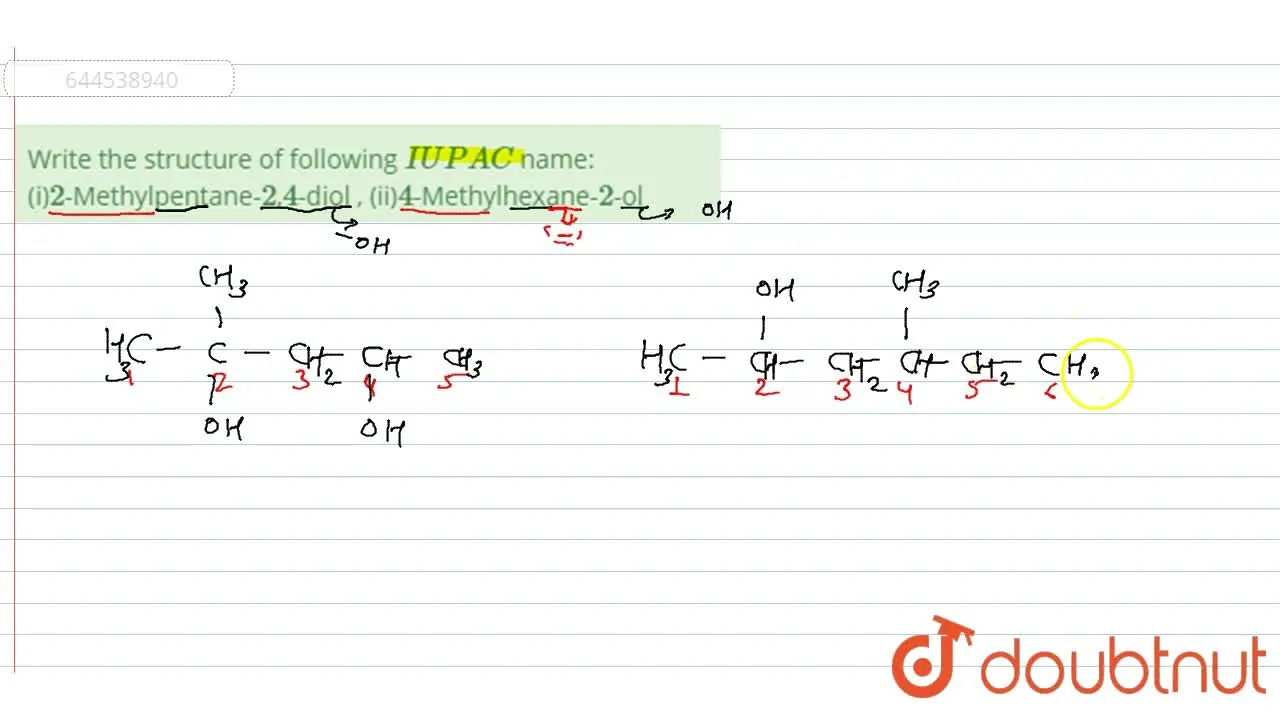 644538940
Write the structure of following IUPAC name:
(i)2-Methylpentane-2,4-diol , (ii)4-Methylhexane-2-ol
OH
-OH
(=)
CH3 OH CH3
H3C - C - CH2 - CH CH3 H3C - CH - CH2 - CH - CH2 - CH3
1 2 3 4 5 1 2 3 4 5 6
OH OH
doubtnut